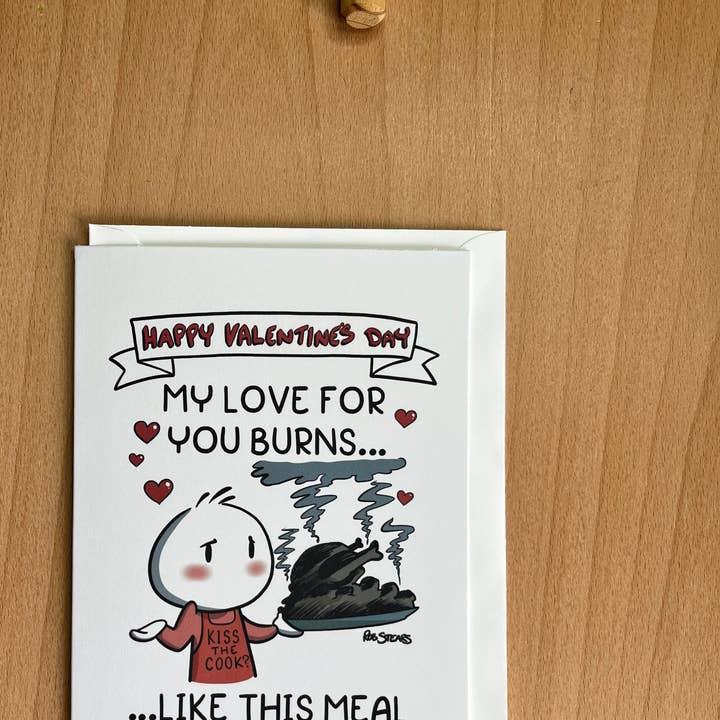 HAPPY VALENTINE'S DAY
MY LOVE FOR
YOU BURNS...
KISS
THE
COOK?
ROB STEARS
...LIKE THIS MEAL